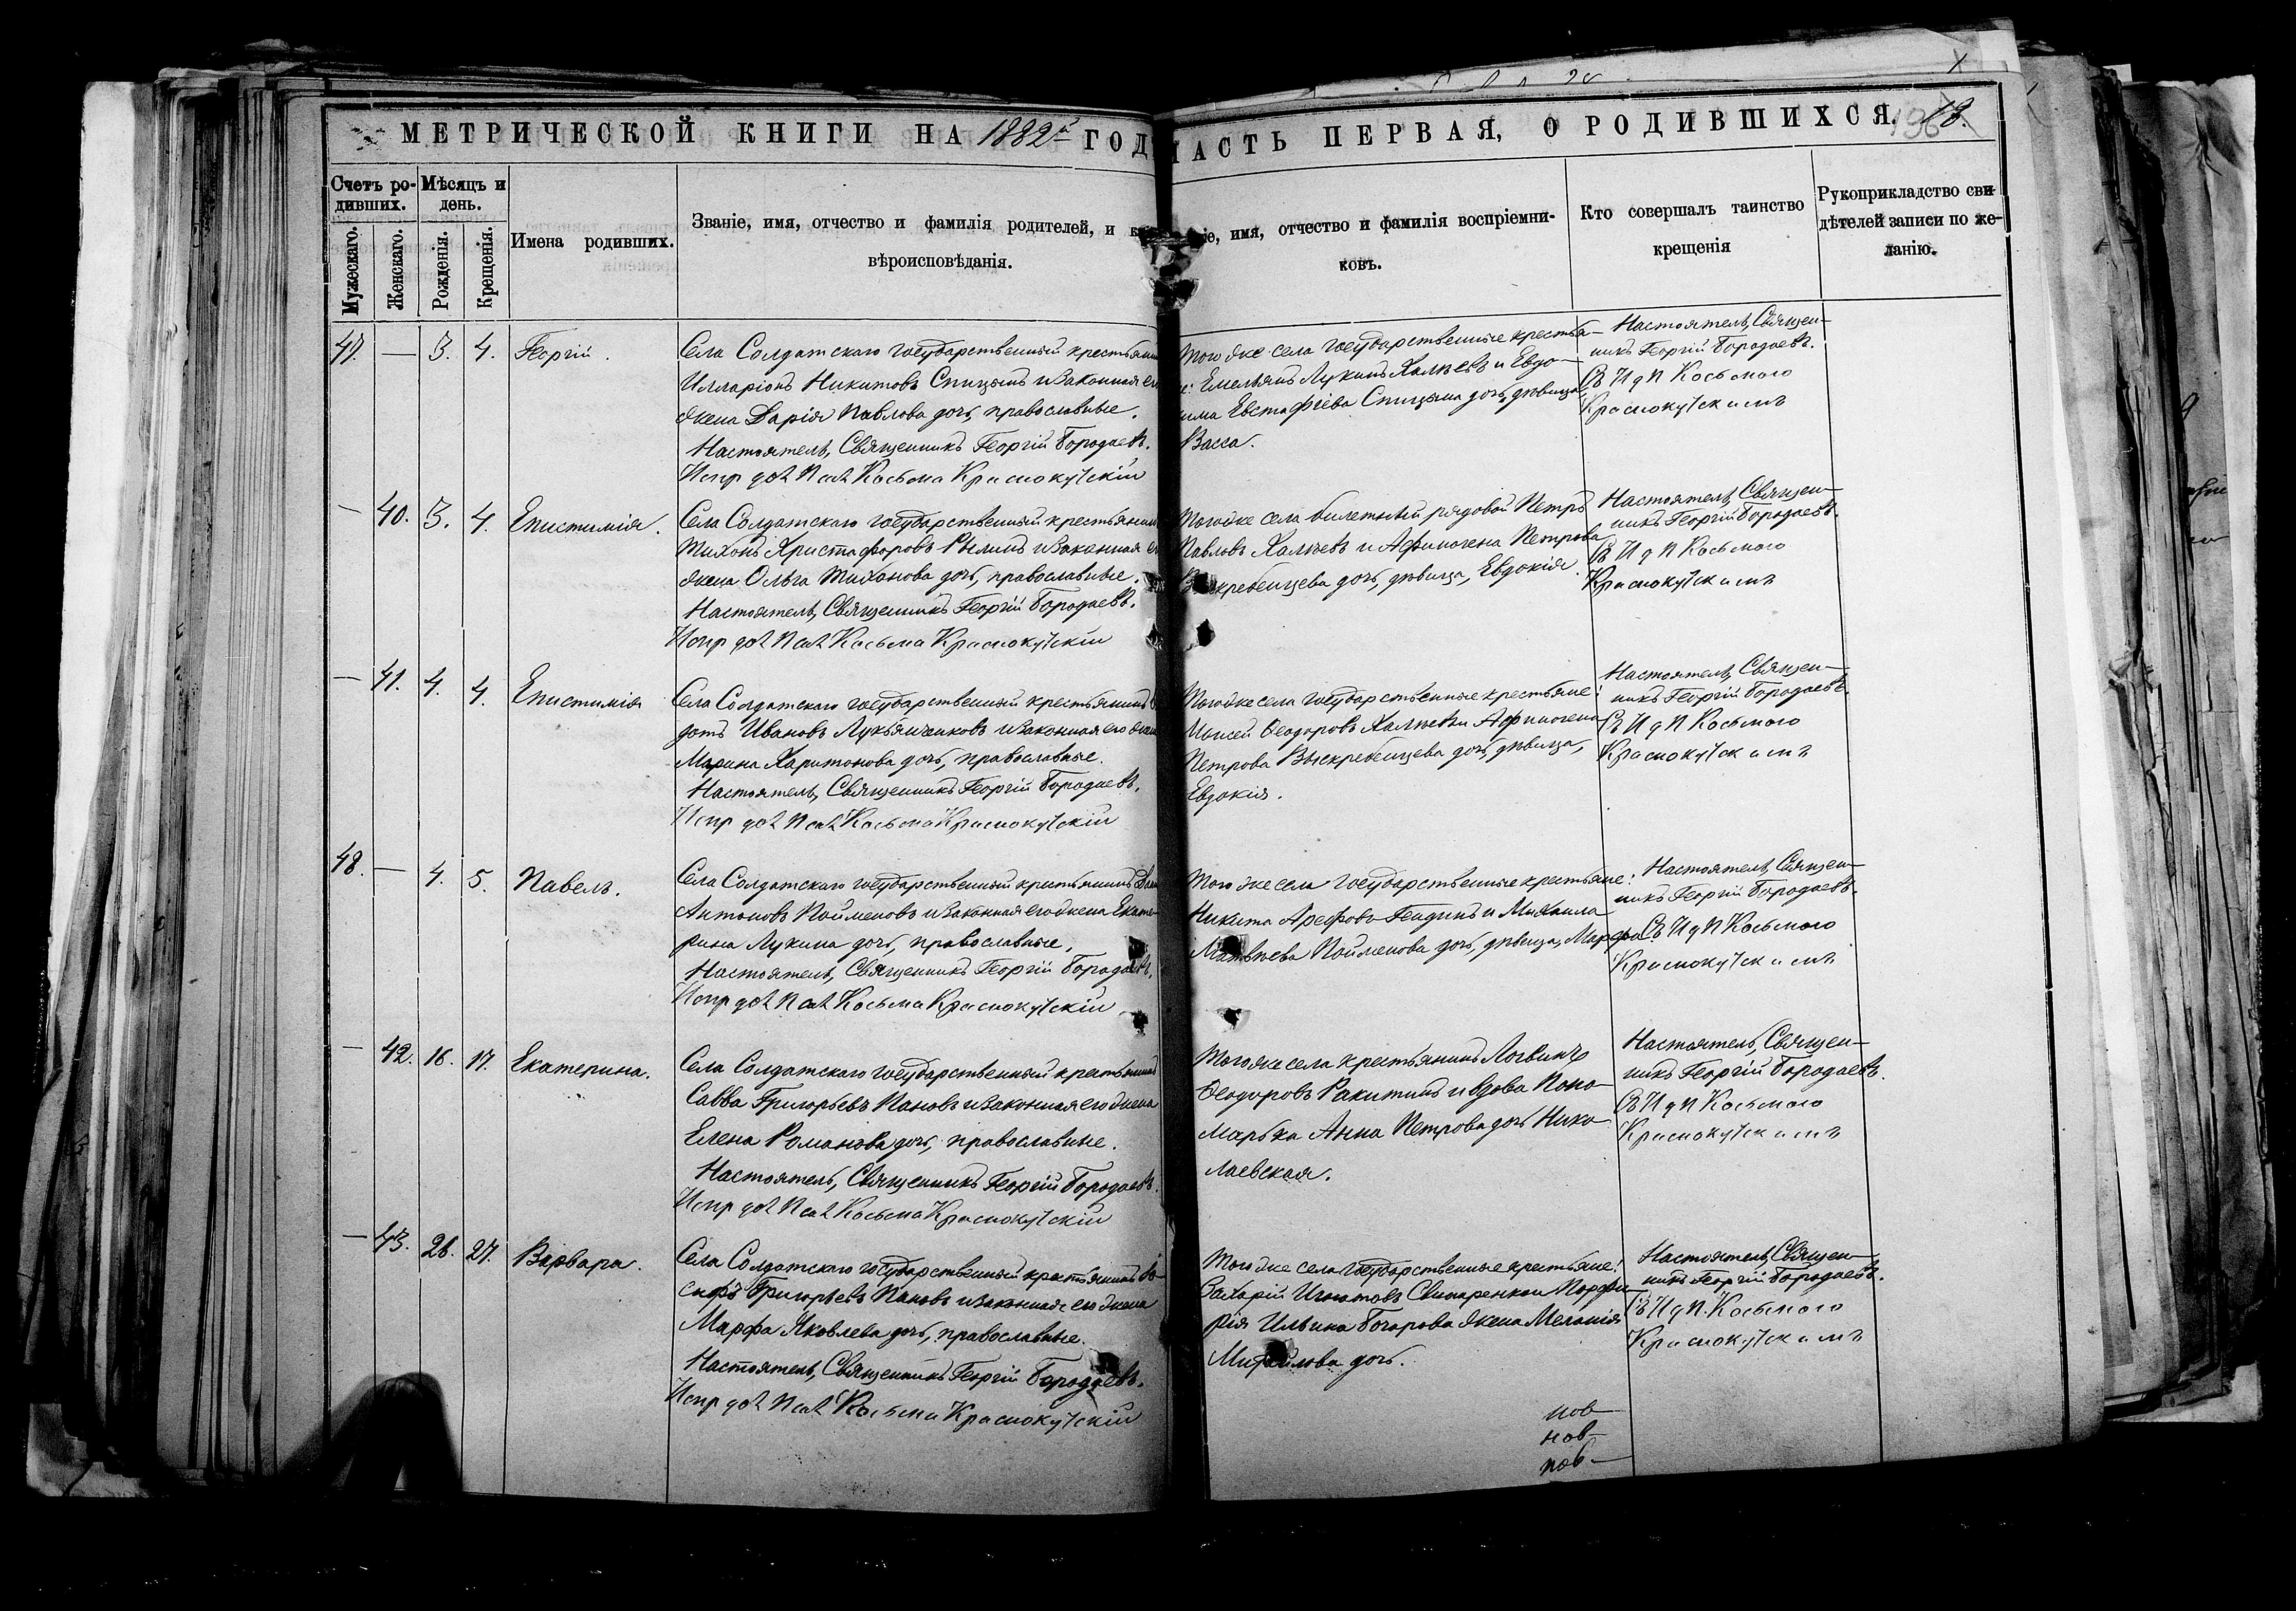 МЕТРИЧЕСКОЙ КНИГИ НА 1882й ГОД
ЧАСТЬ ПЕРВАЯ, О РОДИВШИХСЯ. 196 18.
Счетъ ро-
дивших.
Мѣсяцъ и
день.
Мужескаго.
Женскаго.
Рожденія.
Крещенія.
Имена родившихъ.
Званіе, имя, отчество и фамилія родителей, и к
вѣроисповѣданія.
іе, имя, отчество и фамилія воспріемни-
ковъ.
Кто совершалъ таинство
крещенія
Рукоприкладство сви-
дѣтелей записи по же-
ланію.
47. — 3. 4. Георгій.
Села Солдатскаго государственный крестьянин
Илларіонъ Никитовъ Спицынъ и законная ег
жена Дарія Павлова дочь, православные.
Настоятель, Священникъ Георгій Бородаевъ.
Испр дол Псал Косьма Краснокутскій
Того же села государственные крестья-
е: Емельянъ Лукинъ Халѣевъ и Евдо-
кима Евстафіева Спицына дочь, дѣвица
Васса.
Настоятель, Священ-
никъ Георгій Бородаевъ.
Съ И д П Косьмою
Краснокутскимъ
— 40. 3. 4. Епистимія.
Села Солдатскаго государственный крестьянин
Тихонъ Христофоровъ Рылинъ и законная е
жена Ольга Тихонова дочь, православные.
Настоятель, Священникъ Георгій Бородаевъ.
Испр дол Псал Косьма Краснокутскій
Того же села билетный рядовой Петръ
Павловъ Халѣевъ и Афиногена Петрова
Выскребенцева дочь, дѣвица, Евдокія.
Настоятель, Священ-
никъ Георгій Бородаевъ.
Съ И д П Косьмою
Краснокутскимъ
— 41. 4. 4. Епистимія
Села Солдатскаго государственный крестьянинъ
дотъ Ивановъ Лукьянчиковъ и законная его жена
Марина Харитонова дочь, православные.
Настоятель, Священникъ Георгій Бородаевъ.
Испр дол Псал Косьма Краснокутскій
Того же села государственные крестьяне:
Моисей Ѳеодоровъ Халѣевъ и Афиногена
Петрова Выскребенцева дочь, дѣвица,
Евдокія.
Настоятель, Священ-
никъ Георгій Бородаевъ.
Съ И д П Косьмою
Краснокутскимъ
48. — 4. 5. Павелъ.
Села Солдатскаго государственный крестьянинъ
Антоновъ Пойменовъ и законная его жена Екате-
рина Лукина дочь, православные.
Настоятель, Священникъ Георгій Бородаевъ.
Испр дол Псал Косьма Краснокутскій
Того же села государственные крестьяне:
Никита Арефовъ и Михаила
Матвѣева Пойменова дочь, дѣвица, Марфа.
Настоятель, Священ-
никъ Георгій Бородаевъ.
Съ И д П Косьмою
Краснокутскимъ
— 42. 16. 17. Екатерина.
Села Солдатскаго государственный крестьянинъ
Савва Григорьевъ Пановъ и законная его жена
Елена Романова дочь, православные.
Настоятель, Священникъ Георгій Бородаевъ.
Испр дол Псал Косьма Краснокутскій
Того же села крестьянинъ Логвинъ
Ѳеодоровъ Ракитинъ и вдова Поно-
марька Анна Петрова дочь Нико-
лаевская.
Настоятель, Священ-
никъ Георгій Бородаевъ.
Съ И д П Косьмою
Краснокутскимъ
— 43. 26. 27. Варвара.
Села Солдатскаго государственный крестьянинъ Іо-
сифъ Григорьевъ Пановъ и законная его жена
Марфа Яковлева дочь, православные.
Настоятель, Священникъ Георгій Бородаевъ.
Испр дол Псал Косьма Краснокутскій
Того же села государственные крестьяне:
Захарій Игнатовъ и Порфи-
рія Ильина Бочарова жена Меланія
Михайлова дочь.
Настоятель, Священ-
никъ Георгій Бородаевъ.
Съ И д П. Косьмою
Краснокутскимъ